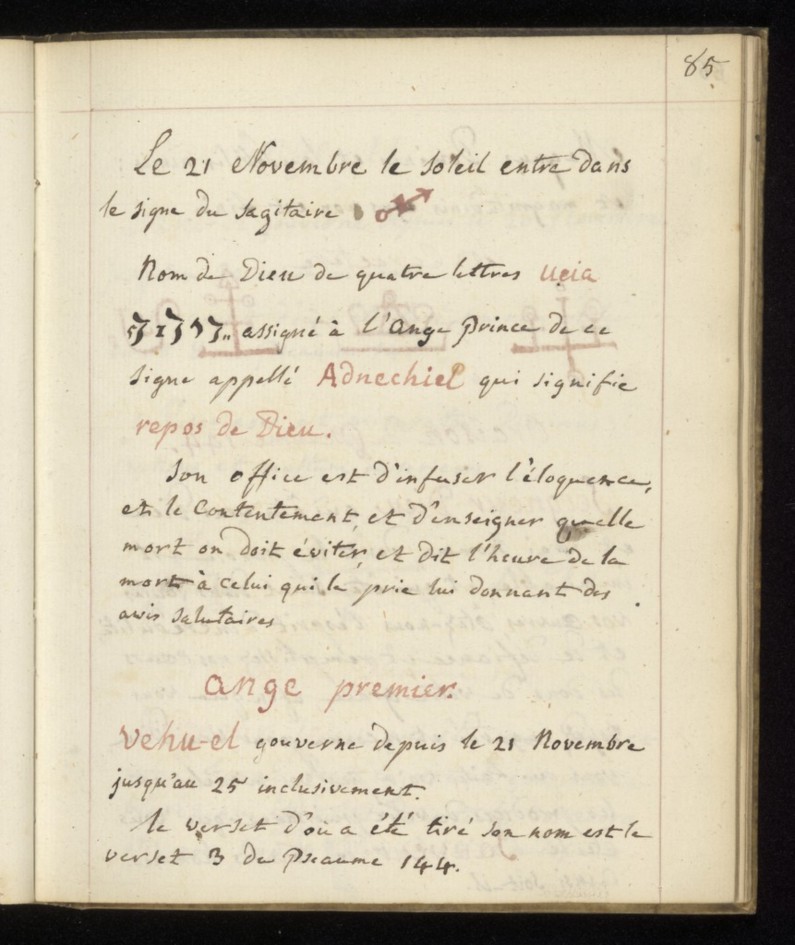 85
Le 21 Novembre le soleil entre dans
le signe du sagitaire ♐
Nom de Dieu de quatre lettres
assigné à l'Ange Prince de ce
signe appellé Adnechiel qui signifie
repos de Dieu.
Son office est d'infuser l'éloquence,
et le Contentement, et d'enseigner quelle
mort on doit éviter, et dit l'heure de la
mort à celui qui le prie lui donnant des
avis salutaires
ange premier.
Vehu-el gouverne depuis le 21 Novembre
jusqu'au 25 inclusivement.
le verset d'où a été tiré son nom est le
verset 3 du Pseaume 144.